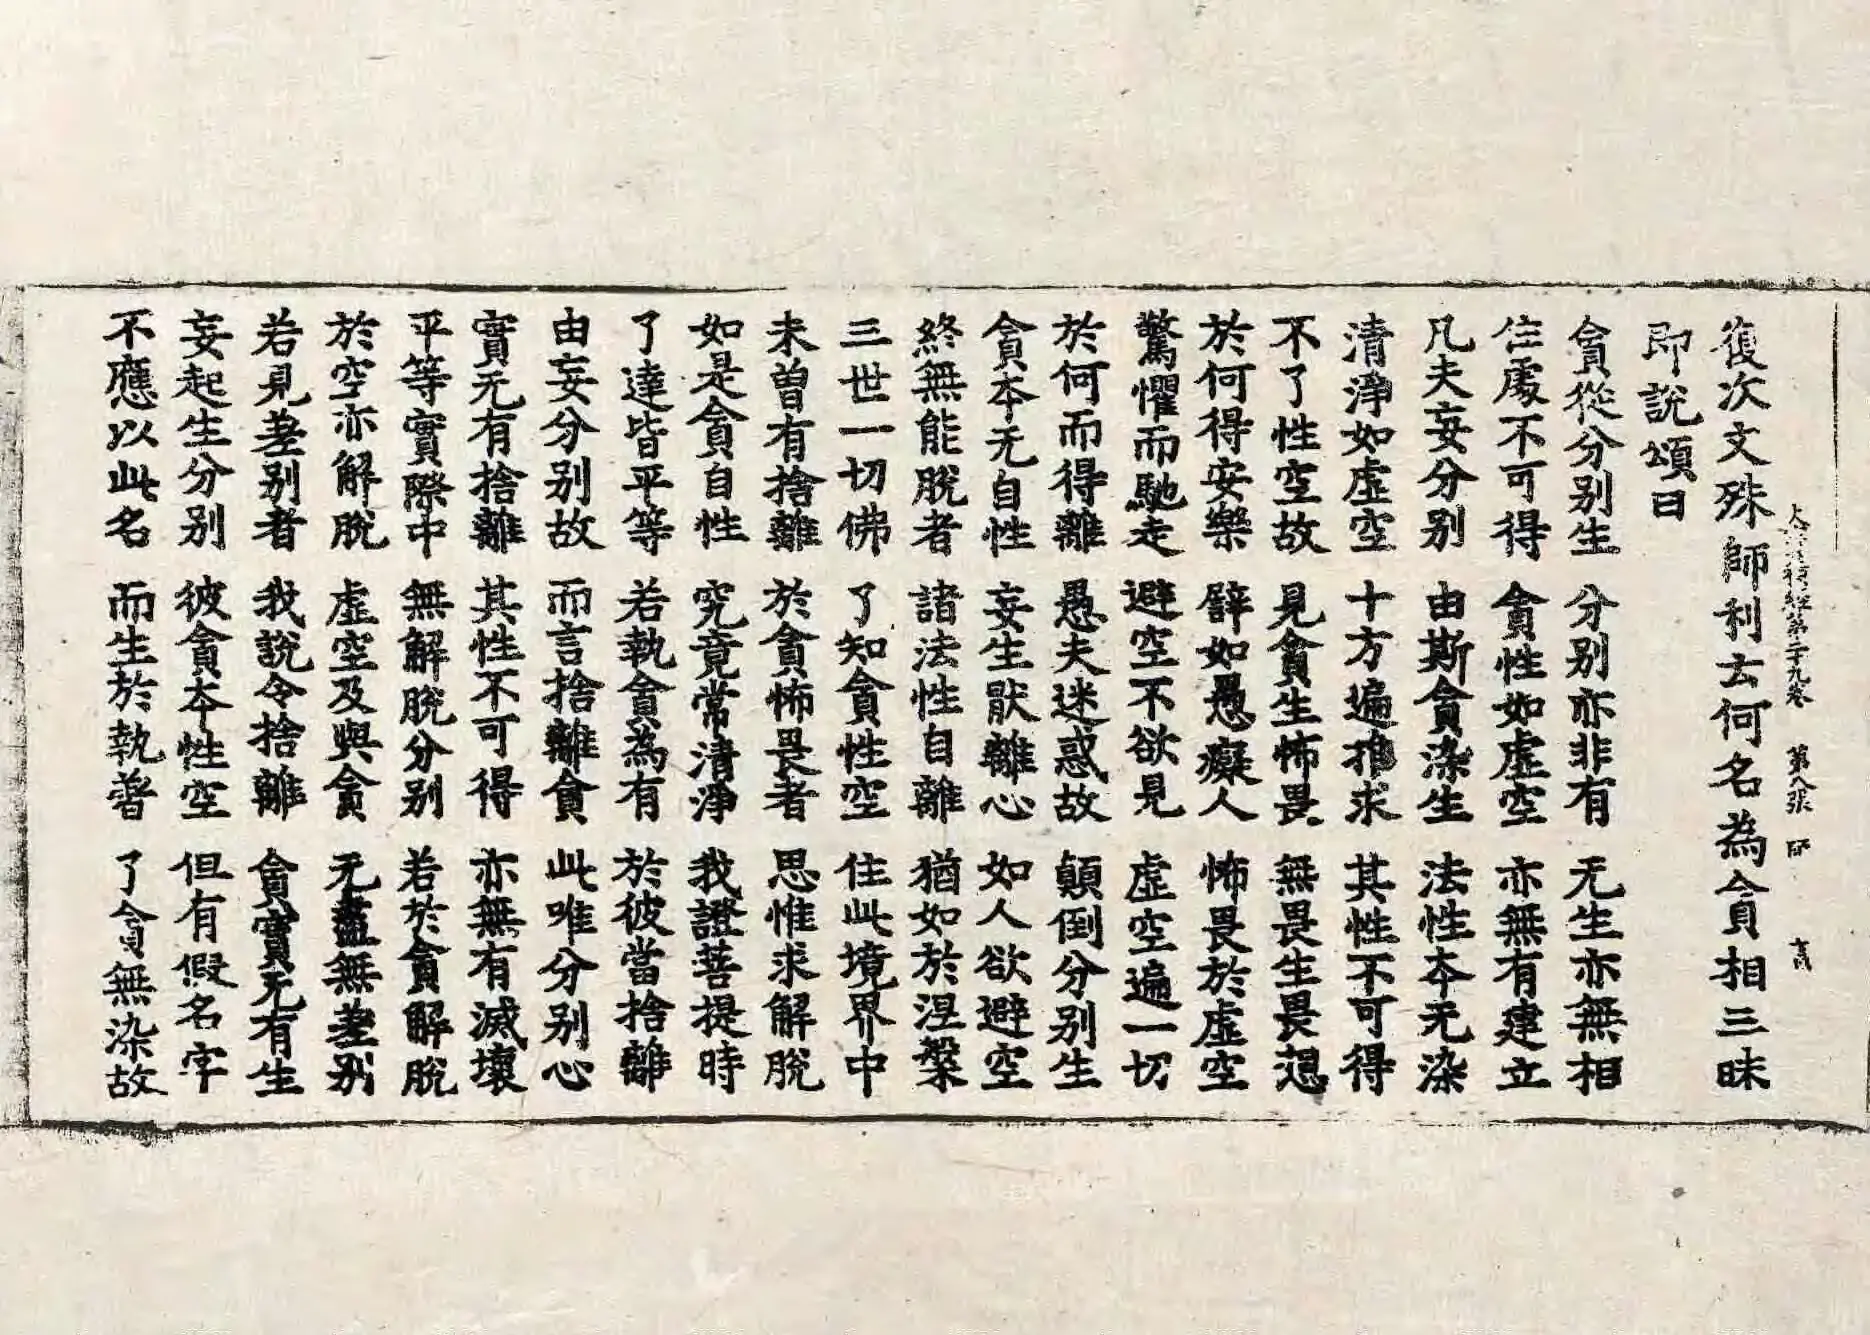 大寶積經第二十九卷 第八張 師
復次文殊師利云何名為貪相三昧
即說頌曰
貪從分別生 分別亦非有 无生亦無相
住處不可得 貪性如虛空 亦無有建立
凡夫妄分別 由斯貪染生 法性本无染
清淨如虛空 十方遍推求 其性不可得
不了性空故 見貪生怖畏 無畏生畏想
於何得安樂 譬如愚癡人 怖畏於虛空
驚懼而馳走 避空不欲見 虛空遍一切
於何而得離 愚夫迷惑故 顛倒分別生
貪本无自性 妄生猒離心 如人欲避空
終無能脫者 諸法性自離 猶如於涅槃
三世一切佛 了知貪性空 住此境界中
未曽有捨離 於貪怖畏者 思惟求解脫
如是貪自性 究竟常清淨 我證菩提時
了達皆平等 若執貪為有 於彼當捨離
由妄分別故 而言捨離貪 此唯分別心
實无有捨離 其性不可得 亦無有滅壞
平等實際中 無解脫分別 若於貪解脫
於空亦解脫 虛空及與貪 无盡無差別
若見差別者 我說令捨離 貪實无有生
妄起生分別 彼貪本性空 但有假名字
不應以此名 而生於執著 了貪無染故